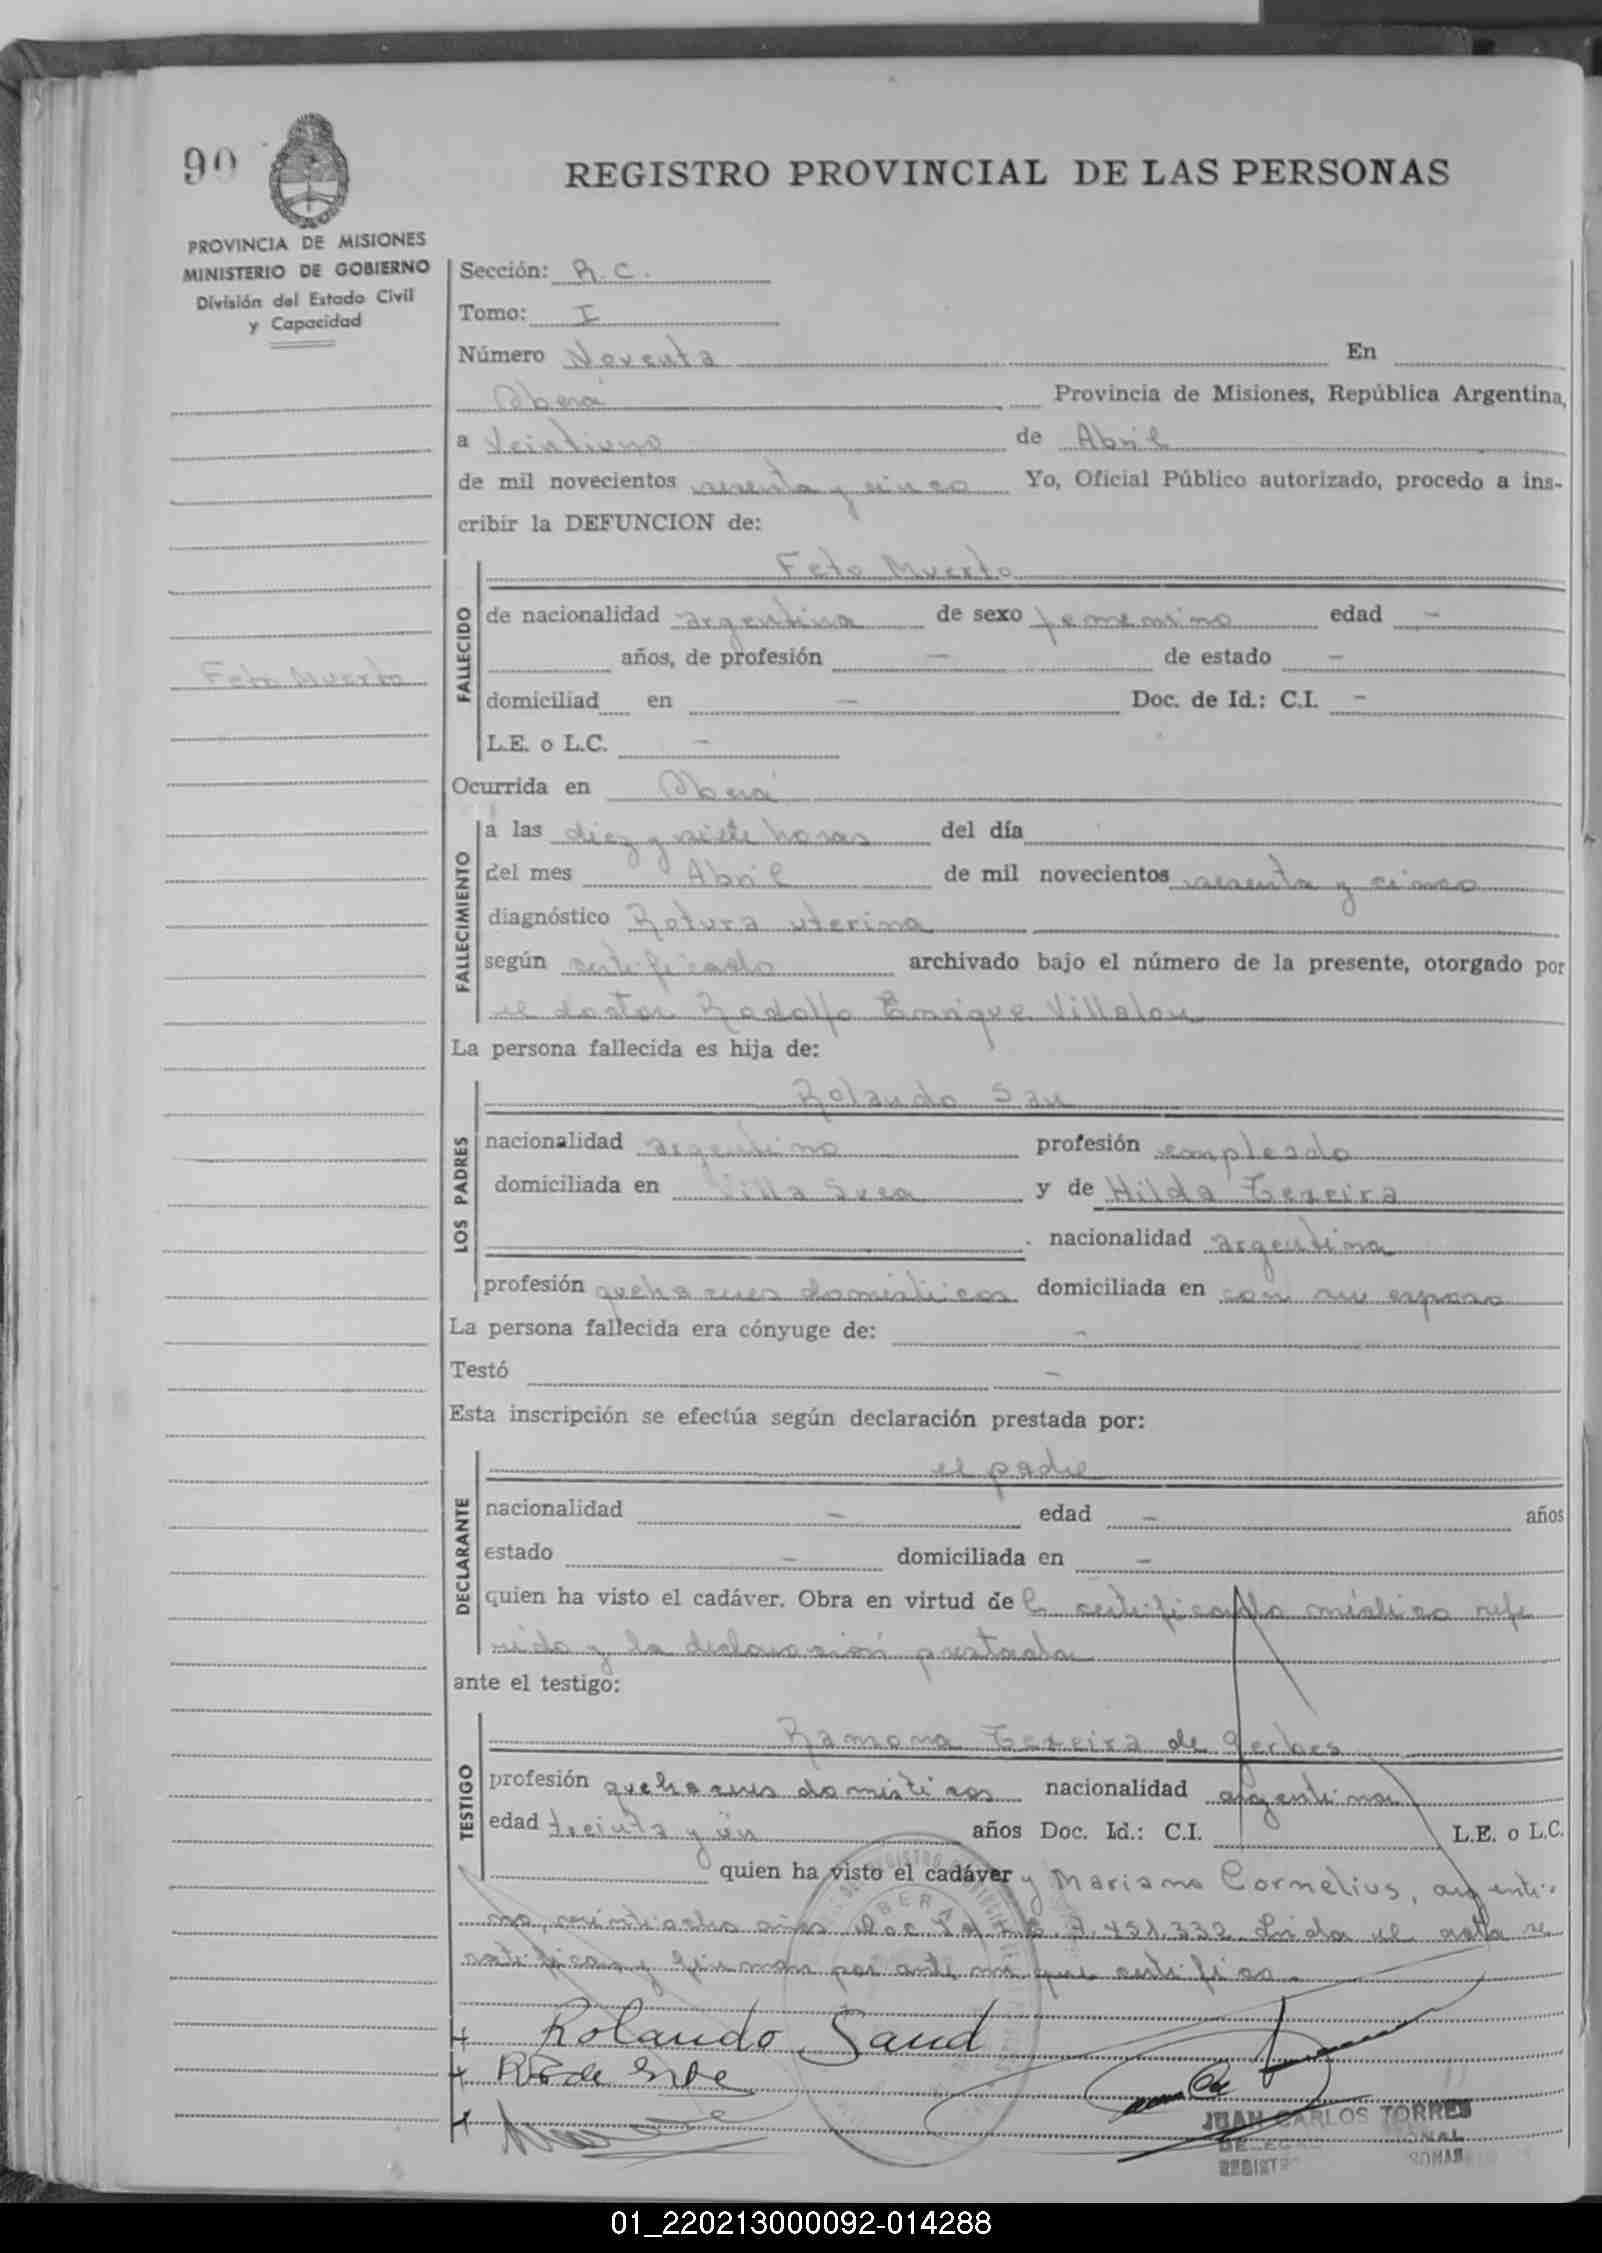 90
REGISTRO PROVINCIAL DE LAS PERSONAS
PROVINCIA DE MISIONES
MINISTERIO DE GOBIERNO
División del Estado Civil
y Capacidad
Sección: R. C.
Tomo: I
Número Noventa En
Oberá Provincia de Misiones, República Argentina,
a Veintiuno de Abril
de mil novecientos sesenta y cinco Yo, Oficial Público autorizado, procedo a ins-
cribir la DEFUNCION de:
Feto Muerto
FALLECIDO
Feto Muerto
de nacionalidad argentina de sexo femenino edad -
años, de profesión - de estado -
domiciliad en - Doc. de Id.: C.I. -
L.E. o L.C. -
Ocurrida en Oberá
FALLECIMIENTO
a las diez y siete horas del día
del mes Abril de mil novecientos sesenta y cinco
diagnóstico Rotura uterina
según certificado archivado bajo el número de la presente, otorgado por
el doctor Rodolfo Enrique Villalou
La persona fallecida es hija de:
LOS PADRES
Rolando Sau
nacionalidad argentino profesión empleado
domiciliada en Villa Svea y de Hilda Texeira
nacionalidad argentina
profesión quehaceres domésticos domiciliada en con su esposo
La persona fallecida era cónyuge de: -
Testó -
Esta inscripción se efectúa según declaración prestada por:
DECLARANTE
el padre
nacionalidad - edad - años
estado - domiciliada en -
quien ha visto el cadáver. Obra en virtud de l certificado médico refe
rido y la declaración prestada
ante el testigo:
TESTIGO
Ramona Texeira de Gerbes
profesión quehaceres domésticos nacionalidad argentina
edad treinta y un años Doc. Id.: C.I. L.E. o L.C.
quien ha visto el cadáver y Mariano Cornelius, argenti-
no, veintiocho años Doc. 7.451.332 Leida el acta se
ratifican y firman por ante mi que certifico.
OBERA
Rolando Saud
JUAN CARLOS TORRES
REGISTR
01_220213000092-014288